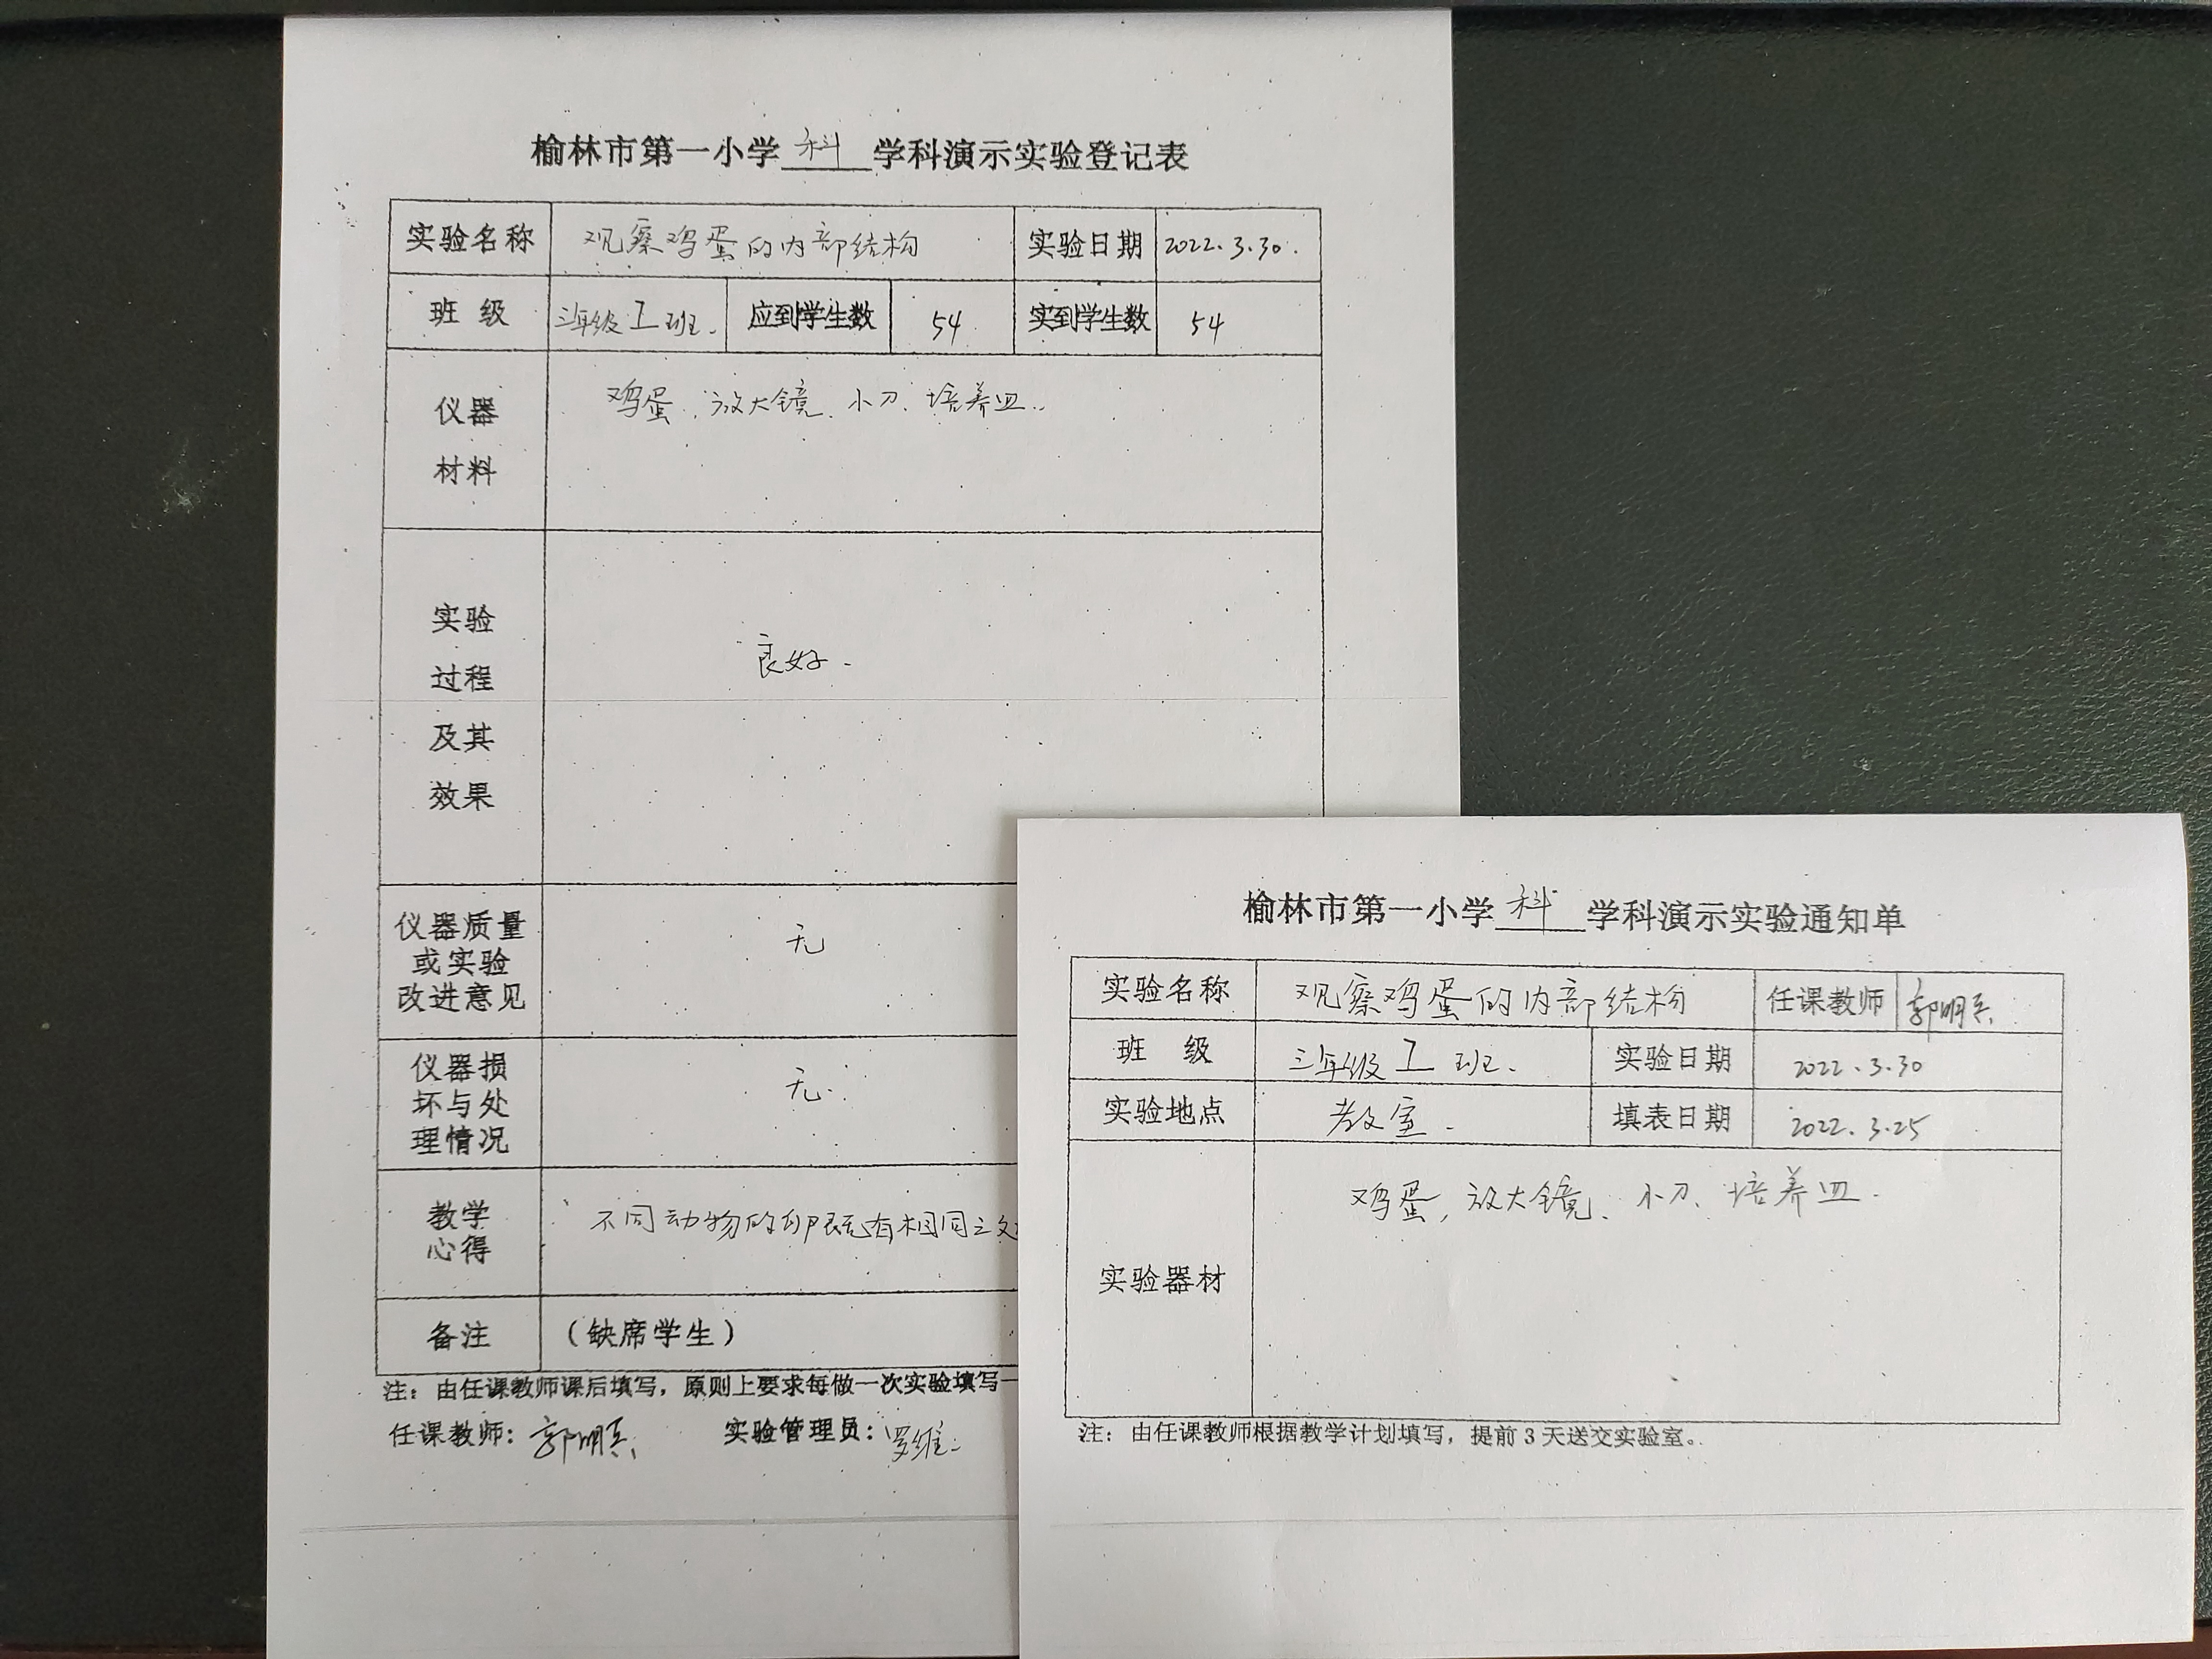 榆林市第一小学 科 学科演示实验登记表
实验名称 观察鸡蛋的内部结构 实验日期 2022.3.30.
班 级 三年级 工 班. 应到学生数 54 实到学生数 54
仪器 鸡蛋、放大镜、小刀、培养皿.
材料
实验
过程 良好.
及其
效果
仪器质量 无
或实验
改进意见
仪器损 无.
坏与处
理情况
教学 不同动物的卵既有相同之处
心得
备注 （缺席学生）
注：由任课教师课后填写，原则上要求每做一次实验填写一
任课教师：郭明兵 实验管理员：罗维
榆林市第一小学 科 学科演示实验通知单
实验名称 观察鸡蛋的内部结构 任课教师 郭明兵
班 级 三年级 工 班. 实验日期 2022.3.30
实验地点 教室. 填表日期 2022.3.25
实验器材 鸡蛋，放大镜、小刀、培养皿.
注：由任课教师根据教学计划填写，提前3天送交实验室。